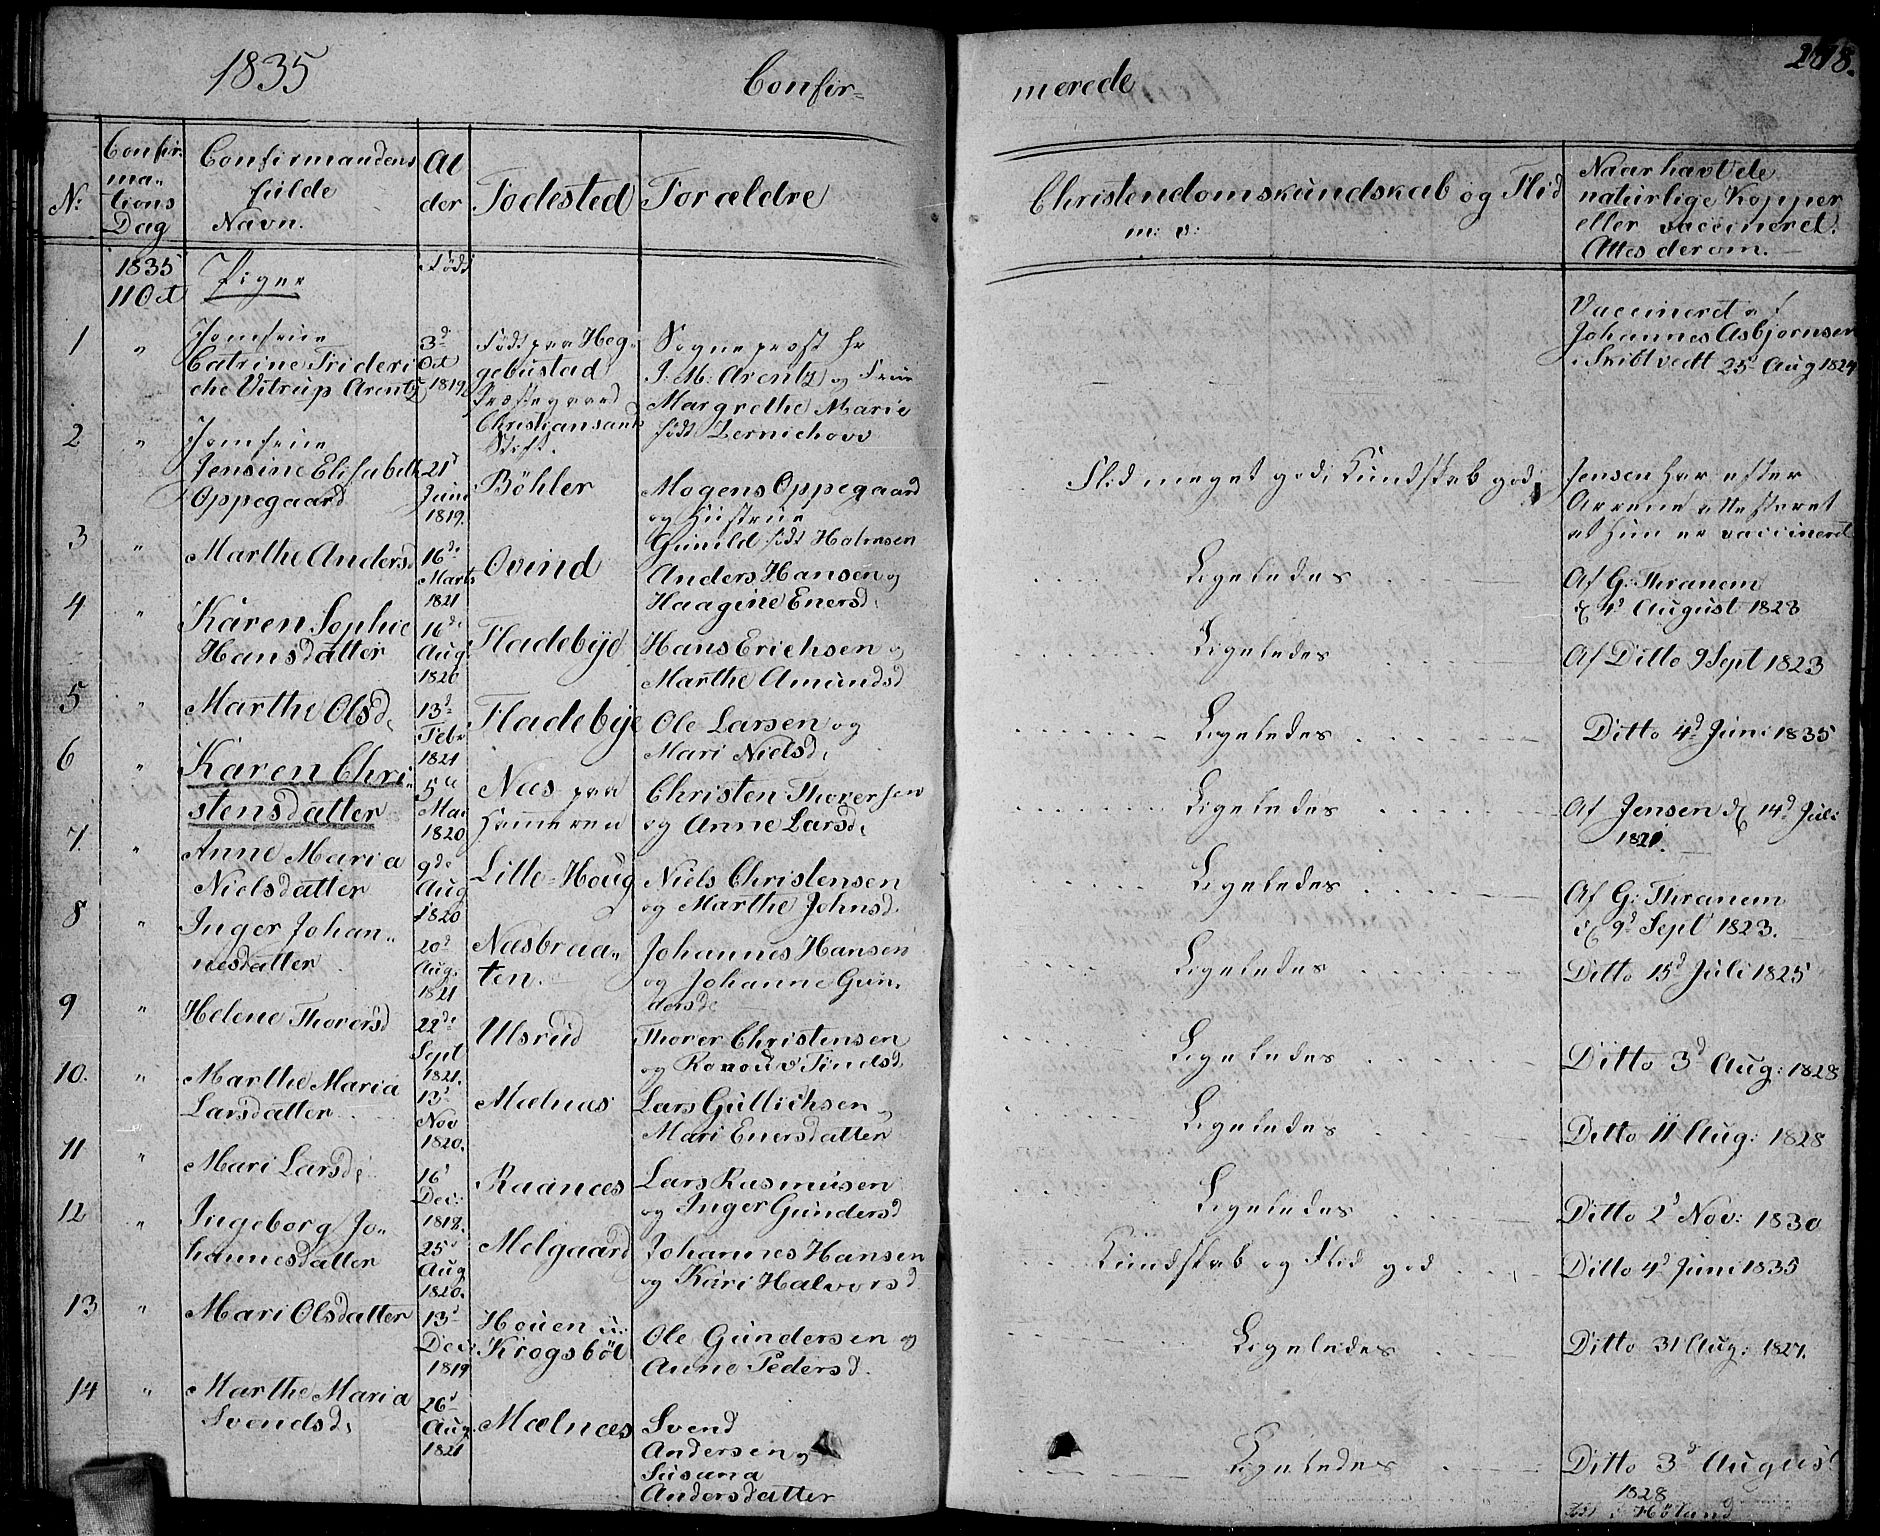 1835
Confir-
merede
218.
No:
Confir-
ma-
tions
Dag
Confirmandens
fulde
Navn.
Al
der
Födested
Forældre
Christendomskundskab og Flid
m: v:
Naar havt de
naturlige Kopper
eller vaccineret.
Attes derom.
1835
11 Oct
Piger
Född
1
"
Jomfrue
Catrine Frideri
che Vitrup Arentz
3d
Oct
1819
Född paa Heg-
gebustad
Præstegaard
Christiansands
Stift.
Sogneprost Hr
J. M: Arentz og Frue
Margrethe Marie
född
Vaccineret af
Johannes Asbjornsen
i Skibtvedt 25 Aug 1824
2
"
Jomfrue
Jensine Elisabeth
Oppegaard
21
Juni
1819.
Böhler
Mogens Oppegaard
og Hustrue
Gunild född Halvorsen
Flid meget god; Kundskab god;
Jensen har efter
attesteret
at hun er vaccineret
3
"
Marthe Andersd
16de
Marts
1821
Ovind
Anders Hansen og
Haagine Enersd:
Ligeledes
Af G: Thranem
d 4d August 1823
4
"
Karen Sophie
Hansdatter
16de
Aug
1820
Fladebye
Hans Erichsen og
Marthe Amundsd
Ligeledes
Af Ditto 9 Sept 1823
5
"
Marthe Olsd:
13d
Febr
1821
Fladebye
Ole Larsen og
Mari Nielsd:
Ligeledes
Ditto 4d Juni 1835
6
"
Karen Chri-
stensdatter
5te
Mai
1820
Næs paa
Hemeren
Christen Thorersen
og Anne Larsd:
Ligeledes
Af Jensen d 14d Juli
1821.
7.
"
Anne Maria
Nielsdatter
9de
Aug
1820
Lille-Houg
Niels Christensen
og Marthe Johnsd.
Ligeledes
Af G: Thranem
d 9d Sept 1823.
8
"
Inger Johan-
nesdatter
20d
Aug.
1821
Næsbraa-
ten.
Johannes Hansen
og Johanne Gun-
dersd:
Ligeledes
Ditto 15d Juli 1825
9
"
Helene Thorersd
22de
Sept
1821.
Ulsrud
Thorer Christensen
og
Ligeledes
Ditto 3d Aug: 1828
10.
"
Marthe Maria
Larsdatter
13d
Nov
1820.
Mælnæs
Lars Gullichsen
Mari Enersdatter
Ligeledes
Ditto 11 Aug: 1828
11
"
Mari Larsd:
16d
Dec:
1818.
Raanæs
Lars Rasmusen
og Inger Gundersd
Ligeledes
Ditto 2d Nov: 1830
12
"
Ingeborg Jo-
hannesdatter
25d
Aug
1820.
Melgaard
Johannes Hansen
og Kari Halvorsd
Kundskab og Flid god
Ditto 4d Juni 1835
13
"
Mari Olsdatter
13d
Dec:
1819
Houen u:
Krogsböl
Ole Gundersen og
Anne Pedersd.
Ligeledes
Ditto 31 Aug: 1827.
14
"
Marthe Maria
Svendsd:
26d
Aug.
1821
Mælnæs
Svend
Andersen og
Susana
Andersdatter
Ligeledes
Ditto 3d August
1828
i Höland